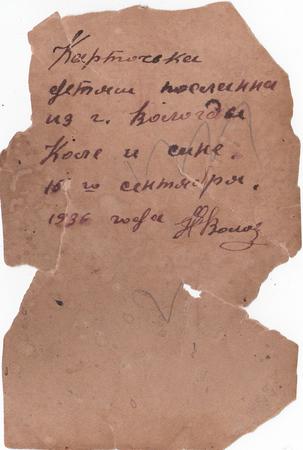 Карточка
детям посланна
из г. Вологды
Коле и сине.
15 го сентября.
1936 года